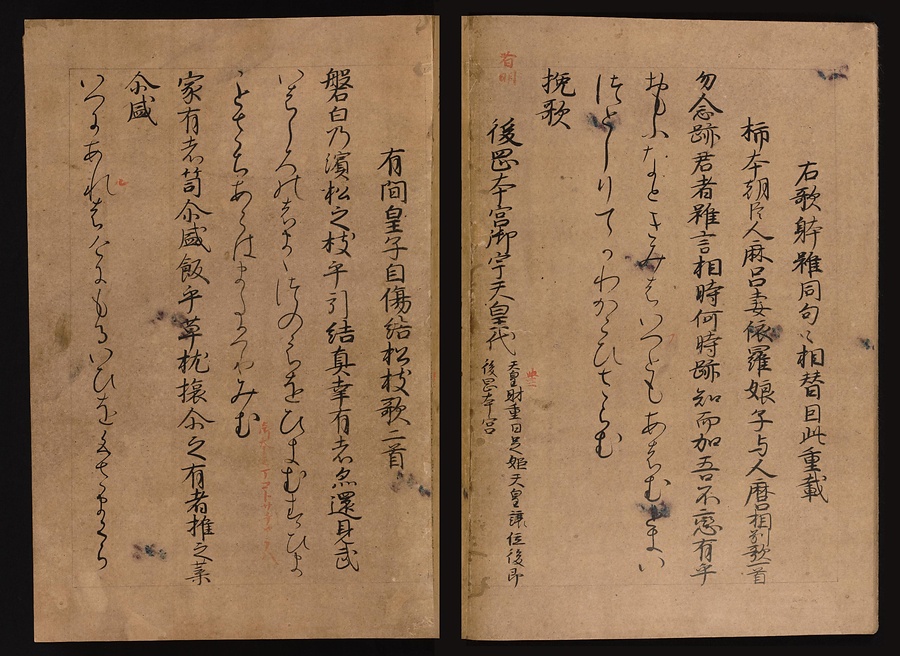 右歌躰雖同句々相替因此重載
柿本朝臣人麻呂妻依羅娘子与人麿相別歌一首
勿念跡君者雖言相時何時跡知而加吾不戀有乎
おもふなときみはいへともあはむときい
つとしりてかわかこひさらむ
挽歌
後岡本宮御宇天皇代 天皇財重日足姫天皇譲位後即
後岡本宮
有間皇子自傷結松枝歌二首
磐白乃濱松之枝乎引結真幸有者忽還見武
いはしろのはまゝつのえたをひきむすひま
ことさちあらはまたかへりみむ
家有者笥尒盛飯乎草枕旅尒之有者椎之葉
尒盛
いへにあれはけにもるいひをくさまくら